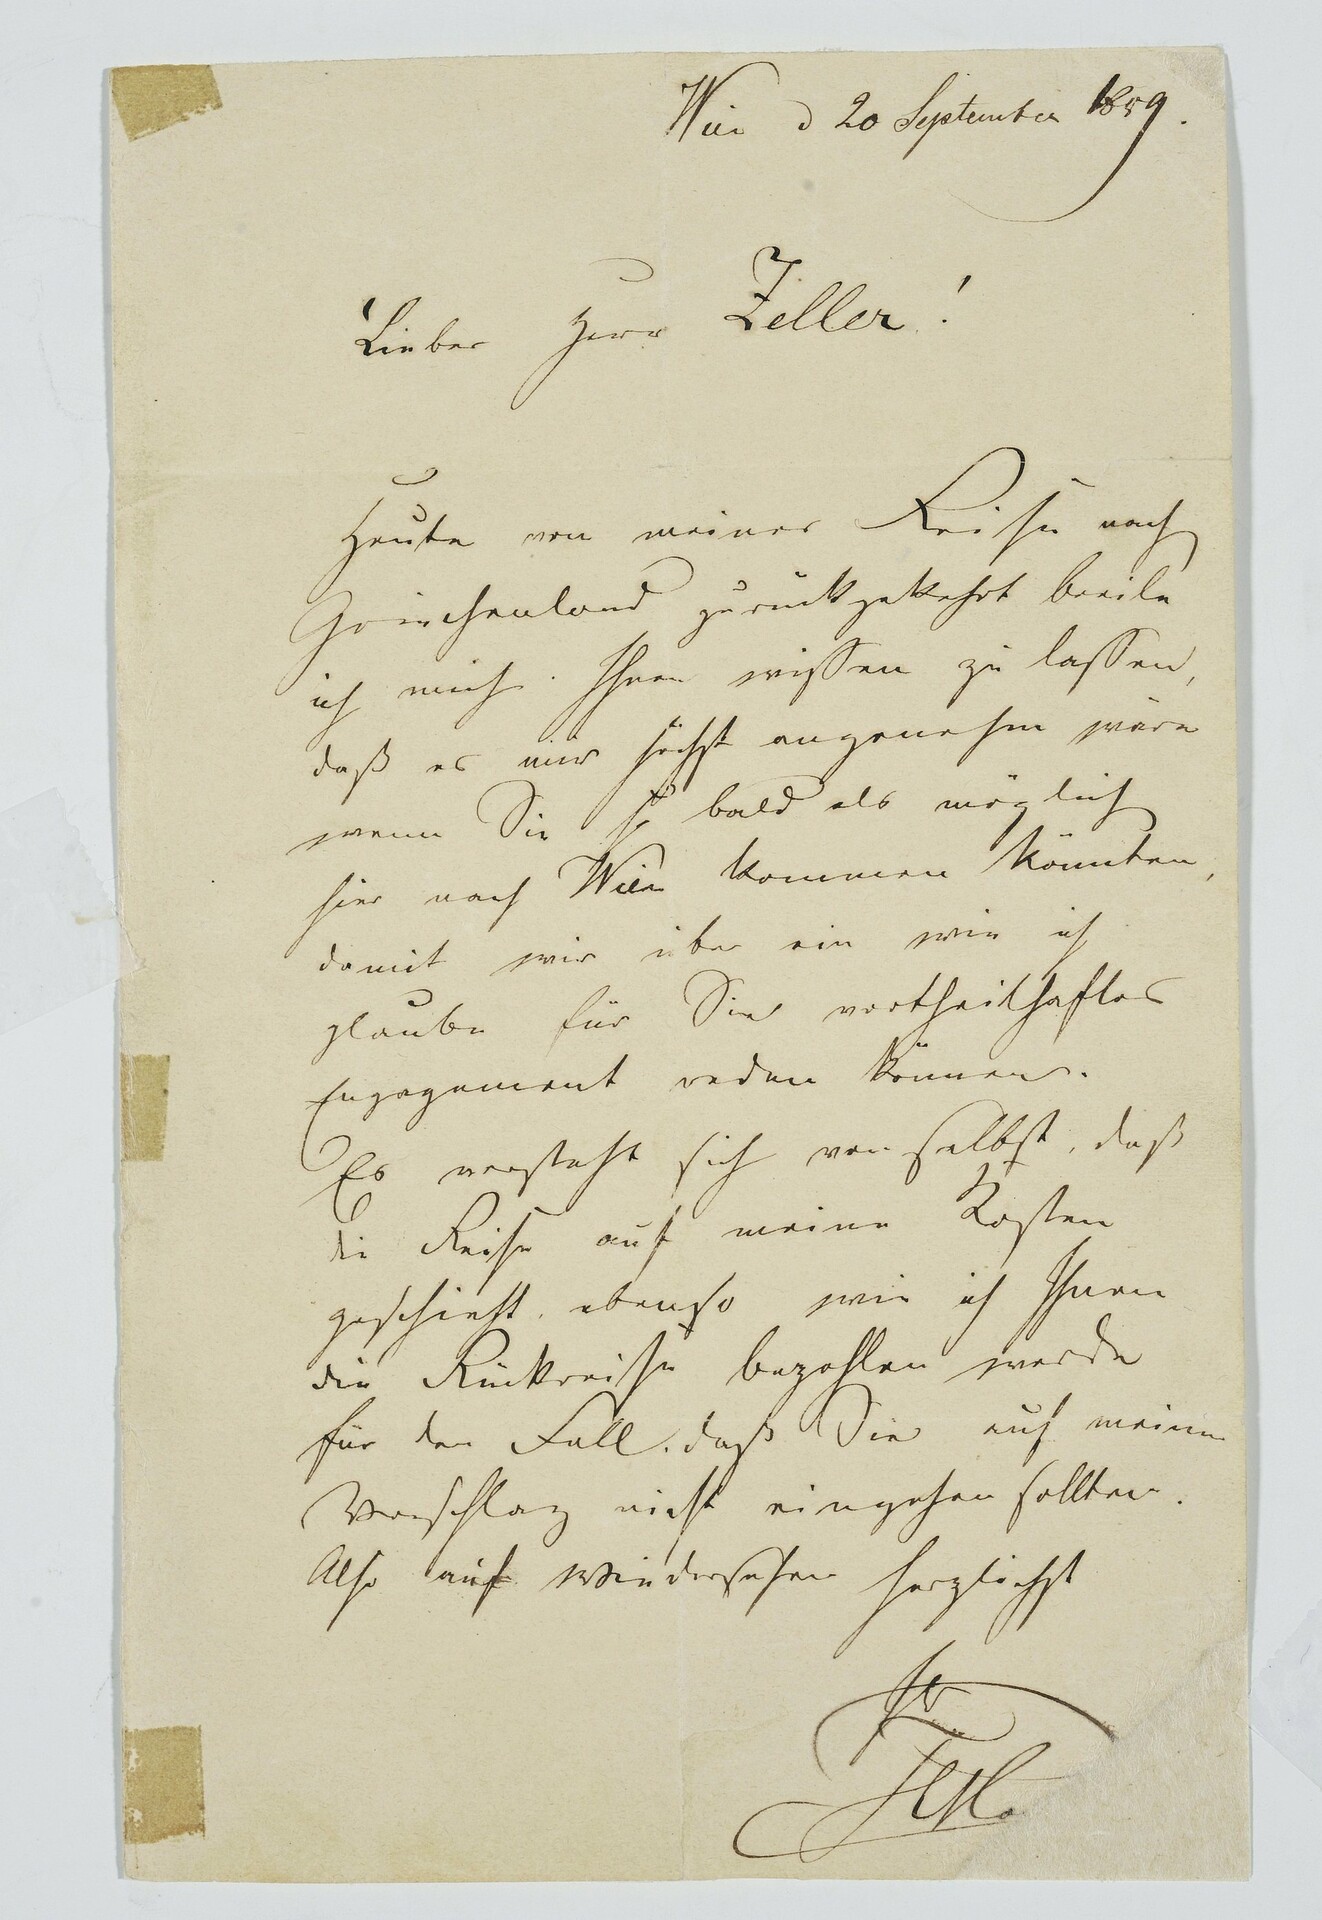 Wien d 20 September 1859.
Lieber Herr Zeller!
Heute von meiner Reise nach
Griechenland zurückgekehrt beeile
ich mich Ihnen wissen zu lassen,
daß es mir höchst angenehm wäre
wenn Sie so bald als möglich
hier nach Wien kommen könnten,
damit wir über ein wie ich
glaube für Sie vortheilhaftes
Engagement reden können.
Es versteht sich von selbst, daß
die Reise auf meine Kosten
geschieht, ebenso wie ich Ihnen
die Rückreise bezahlen werde
für den Fall, daß Sie auf meinen
Vorschlag nicht eingehen sollten.
Also auf Wiedersehen herzlichst
Ihr